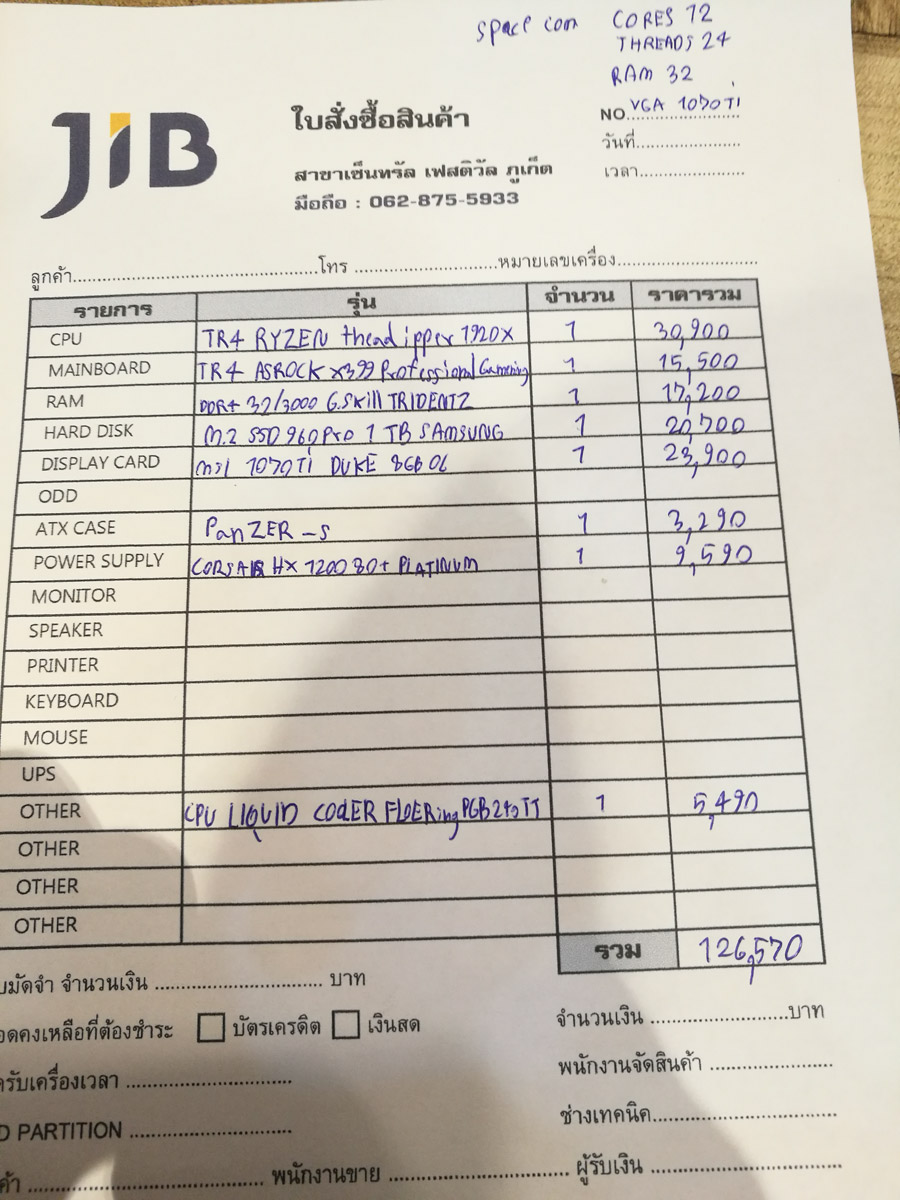 space com CORES 12
THREADS 24
RAM 32
VGA 1070Ti
JIB
ใบสั่งซื้อสินค้า
NO..............................
วันที่..............................
สาขาเซ็นทรัล เฟสติวัล ภูเก็ต
เวลา..............................
มือถือ : 062-875-5933
ลูกค้า..............................โทร ..............................หมายเลขเครื่อง..............................
รายการ รุ่น จำนวน ราคารวม
CPU TR4 RYZEN theadipper 1920X 1 30,900
MAINBOARD TR4 ASROCK X399 Professional Gamening 1 15,500
RAM DDR4 32/3000 G.Skill TRIDENTZ 1 17,200
HARD DISK M.2 SSD 960 Pro 1 TB SAMSUNG 1 20,700
DISPLAY CARD msi 1070Ti DUKE 8GB OC 1 23,900
ODD
ATX CASE PanZER-S 1 3,290
POWER SUPPLY CORSAIR HX 1200 80+ PLATINUM 1 9,590
MONITOR
SPEAKER
PRINTER
KEYBOARD
MOUSE
UPS
OTHER CPU LIQUID COOLER FLOERing RGB 240 TT 1 5,490
OTHER
OTHER
OTHER
รวม 126,570
จำนวนเงิน .............................. บาท
จำนวนเงิน ..............................บาท
คงเหลือที่ต้องชำระ บัตรเครดิต เงินสด
พนักงานจัดสินค้า ..............................
รับเครื่องเวลา ..............................
ช่างเทคนิค..............................
PARTITION ..............................
.............................. พนักงานขาย .............................. ผู้รับเงิน ..............................